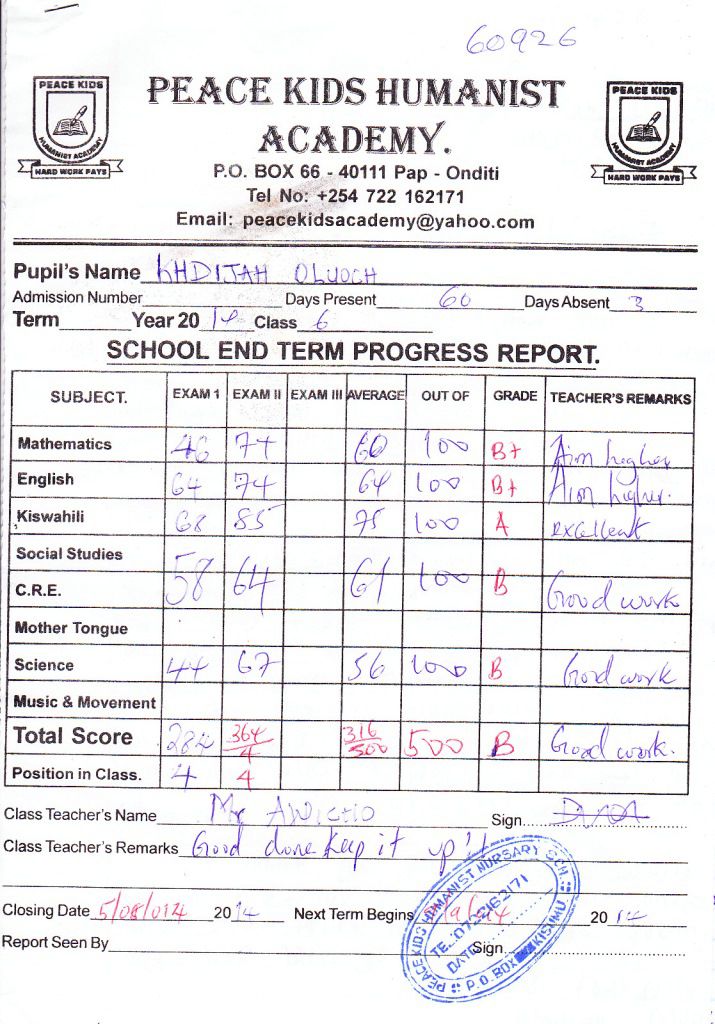 60926
PEACE KIDS
HUMANIST ACADEMY
HARD WORK PAYS
PEACE KIDS HUMANIST
ACADEMY.
PEACE KIDS
HUMANIST ACADEMY
HARD WORK PAYS
P.O. BOX 66 - 40111 Pap - Onditi
Tel No: +254 722 162171
Email: peacekidsacademy@yahoo.com
Pupil's Name KHDIJAH OLUOCH
Admission Number Days Present 60 Days Absent 3
Term Year 20 14 Class 6
SCHOOL END TERM PROGRESS REPORT.
SUBJECT. EXAM 1 EXAM II EXAM III AVERAGE OUT OF GRADE TEACHER'S REMARKS
Mathematics 46 74 60 100 B+ Aim higher
English 64 74 64 100 B+ Aim higher.
Kiswahili 68 85 75 100 A excellent
Social Studies
C.R.E. 58 64 61 100 B Good work
Mother Tongue
Science 44 67 56 100 B Good work
Music & Movement
Total Score 284 364/4 316/500 500 B Good work.
Position in Class. 4 4
Class Teacher's Name Mr Sign
Class Teacher's Remarks Good done keep it up!
Closing Date 5/08/014 20 14 Next Term Begins 20 14
Report Seen By Sign
PEACE KIDS HUMANIST NURSARY SCH.
TEL:0722162171
DATE
P.O. BOX KISUMU